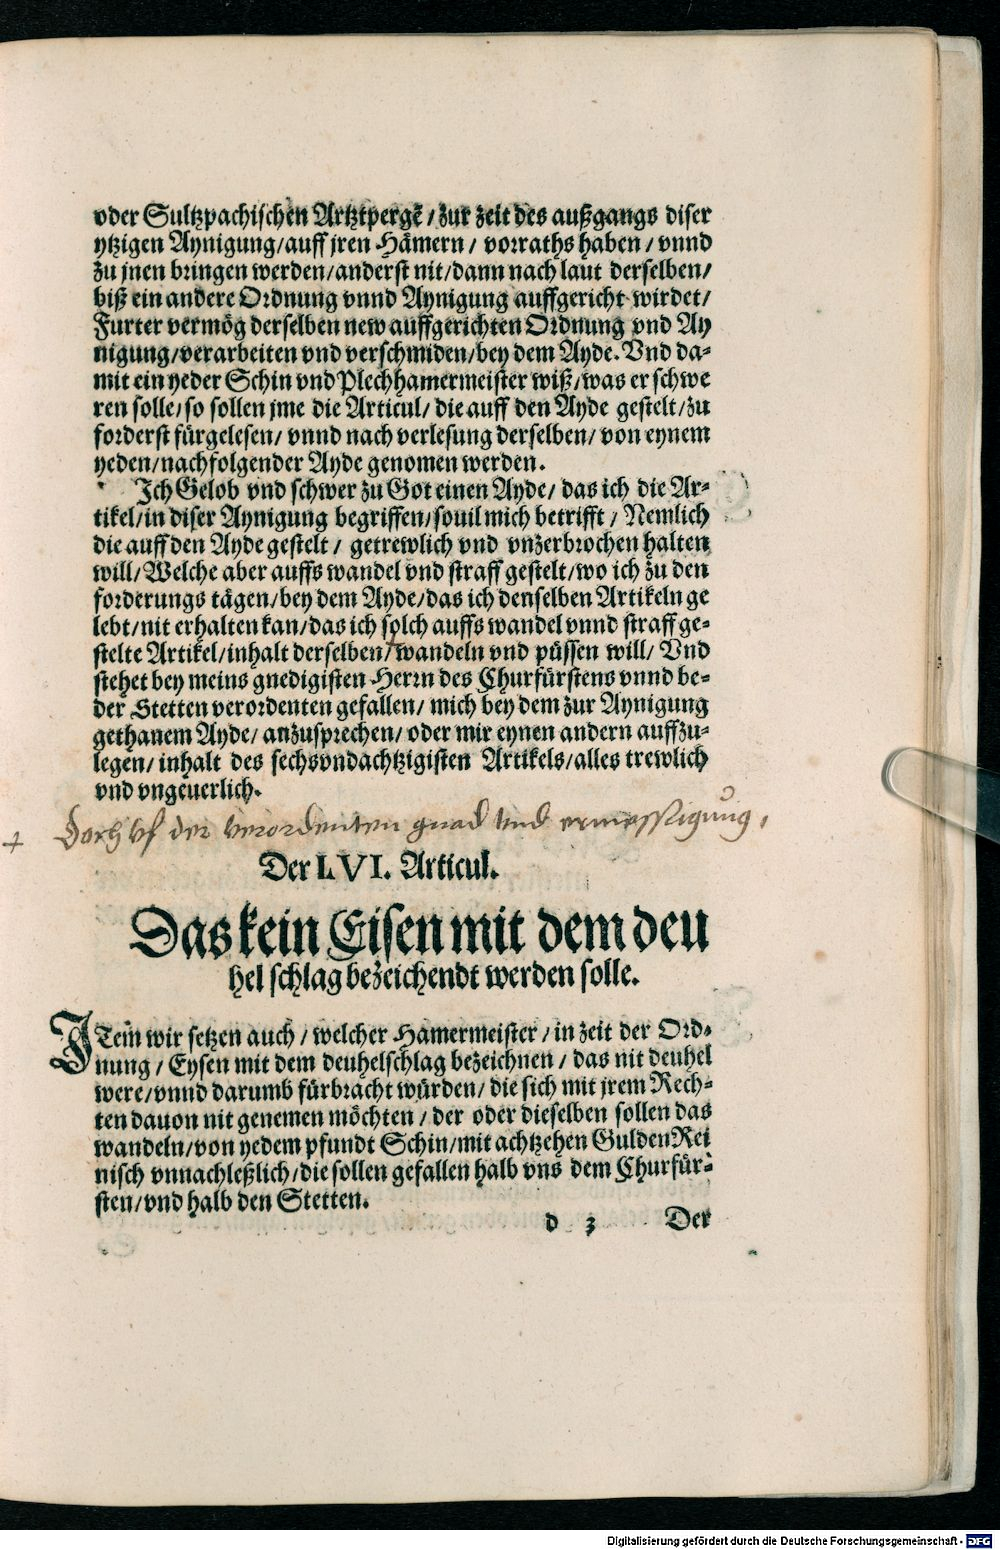 oder Sultzpachischen Artztpergē / zur zeit des außgangs diser
ytzigen Aynigung/auff jren Hämern / vorraths haben / vnnd
zu jnen bringen werden/anderst nit/dann nach laut derselben/
biß ein andere Ordnung vnnd Aynigung auffgericht wirdet/
Furter vermög derselben new auffgerichten Ordnung vnd Ay
nigung/verarbeiten vnd verschmiden/bey dem Ayde. Vnd da-
mit ein yeder Schin vnd Plechhamermeister wiß/was er schwe
ren solle/so sollen jme die Articul/ die auff den Ayde gestelt/zu
forderst fürgelesen/ vnnd nach verlesung derselben/ von eynem
yeden/nachfolgender Ayde genomen werden.
Ich Gelob vnd schwer zu Got einen Ayde/ das ich die Ar-
tikel/in diser Aynigung begriffen/souil mich betrifft / Nemlich
die auff den Ayde gestelt / getrewlich vnd vnzerbrochen halten
will/Welche aber auffs wandel vnd straff gestelt/wo ich zu den
forderungs tägen/bey dem Ayde/das ich denselben Artikeln ge
lebt/nit erhalten kan/das ich solch auffs wandel vnnd straff ge-
stelte Artikel/inhalt derselben/wandeln vnd püssen will/ Vnd
stehet bey meins gnedigisten Herrn des Churfürstens vnnd be-
der Stetten verordenten gefallen/ mich bey dem zur Aynigung
gethanem Ayde/ anzusprechen/ oder mir eynen andern auffzu-
legen/ inhalt des sechsvndachtzigisten Artikels/alles trewlich
vnd vngeuerlich.
+ Doch vf der verordenten gnad vnd ermessigung,
Der LVI. Articul.
Das kein Eisen mit dem deu
hel schlag bezeichendt werden solle.
ITem wir setzen auch / welcher Hamermeister / in zeit der Ord-
nung / Eysen mit dem deuhelschlag bezeichnen / das nit deuhel
were/vnnd darumb fürbracht würden/ die sich mit jrem Rech-
ten dauon nit genemen möchten / der oder dieselben sollen das
wandeln/von yedem pfundt Schin/mit achtzehen Gulden Rei
nisch vnnachleßlich/die sollen gefallen halb vns dem Churfür-
sten/vnd halb den Stetten.
d 3 Der
Digitalisierung gefördert durch die Deutsche Forschungsgemeinschaft - DFG